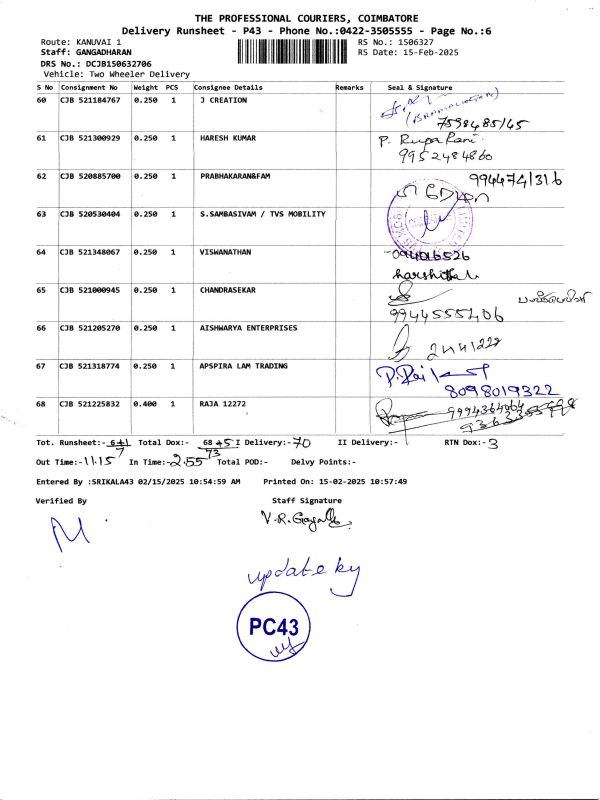 THE PROFESSIONAL COURIERS, COIMBATORE
Delivery Runsheet - P43 - Phone No.:0422-3505555 - Page No.:6
Route: KANUVAI 1 RS No.: 1506327
Staff: GANGADHARAN RS Date: 15-Feb-2025
DRS No.: DCJB150632706
Vehicle: Two Wheeler Delivery
S No Consignment No Weight PCS Consignee Details Remarks Seal & Signature
60 CJB 521184767 0.250 1 J CREATION
7598485145
61 CJB 521300929 0.250 1 HARESH KUMAR P. Rupa Rani
9952484860
62 CJB 520885700 0.250 1 PRABHAKARAN&FAM 9944741316
63 CJB 520530404 0.250 1 S.SAMBASIVAM / TVS MOBILITY
64 CJB 521348067 0.250 1 VISWANATHAN
65 CJB 521000945 0.250 1 CHANDRASEKAR
9944555406
66 CJB 521205270 0.250 1 AISHWARYA ENTERPRISES
67 CJB 521318774 0.250 1 APSPIRA LAM TRADING
8098019322
68 CJB 521225832 0.400 1 RAJA 12272
Tot. Runsheet:- 6+1 Total Dox:- 68+5 I Delivery:-70 II Delivery:- RTN Dox:-3
7 73
Out Time:-11.15 In Time:-2.55 Total POD:- Delvy Points:-
Entered By :SRIKALA43 02/15/2025 10:54:59 AM Printed On: 15-02-2025 10:57:49
Verified By Staff Signature
update by
PC43